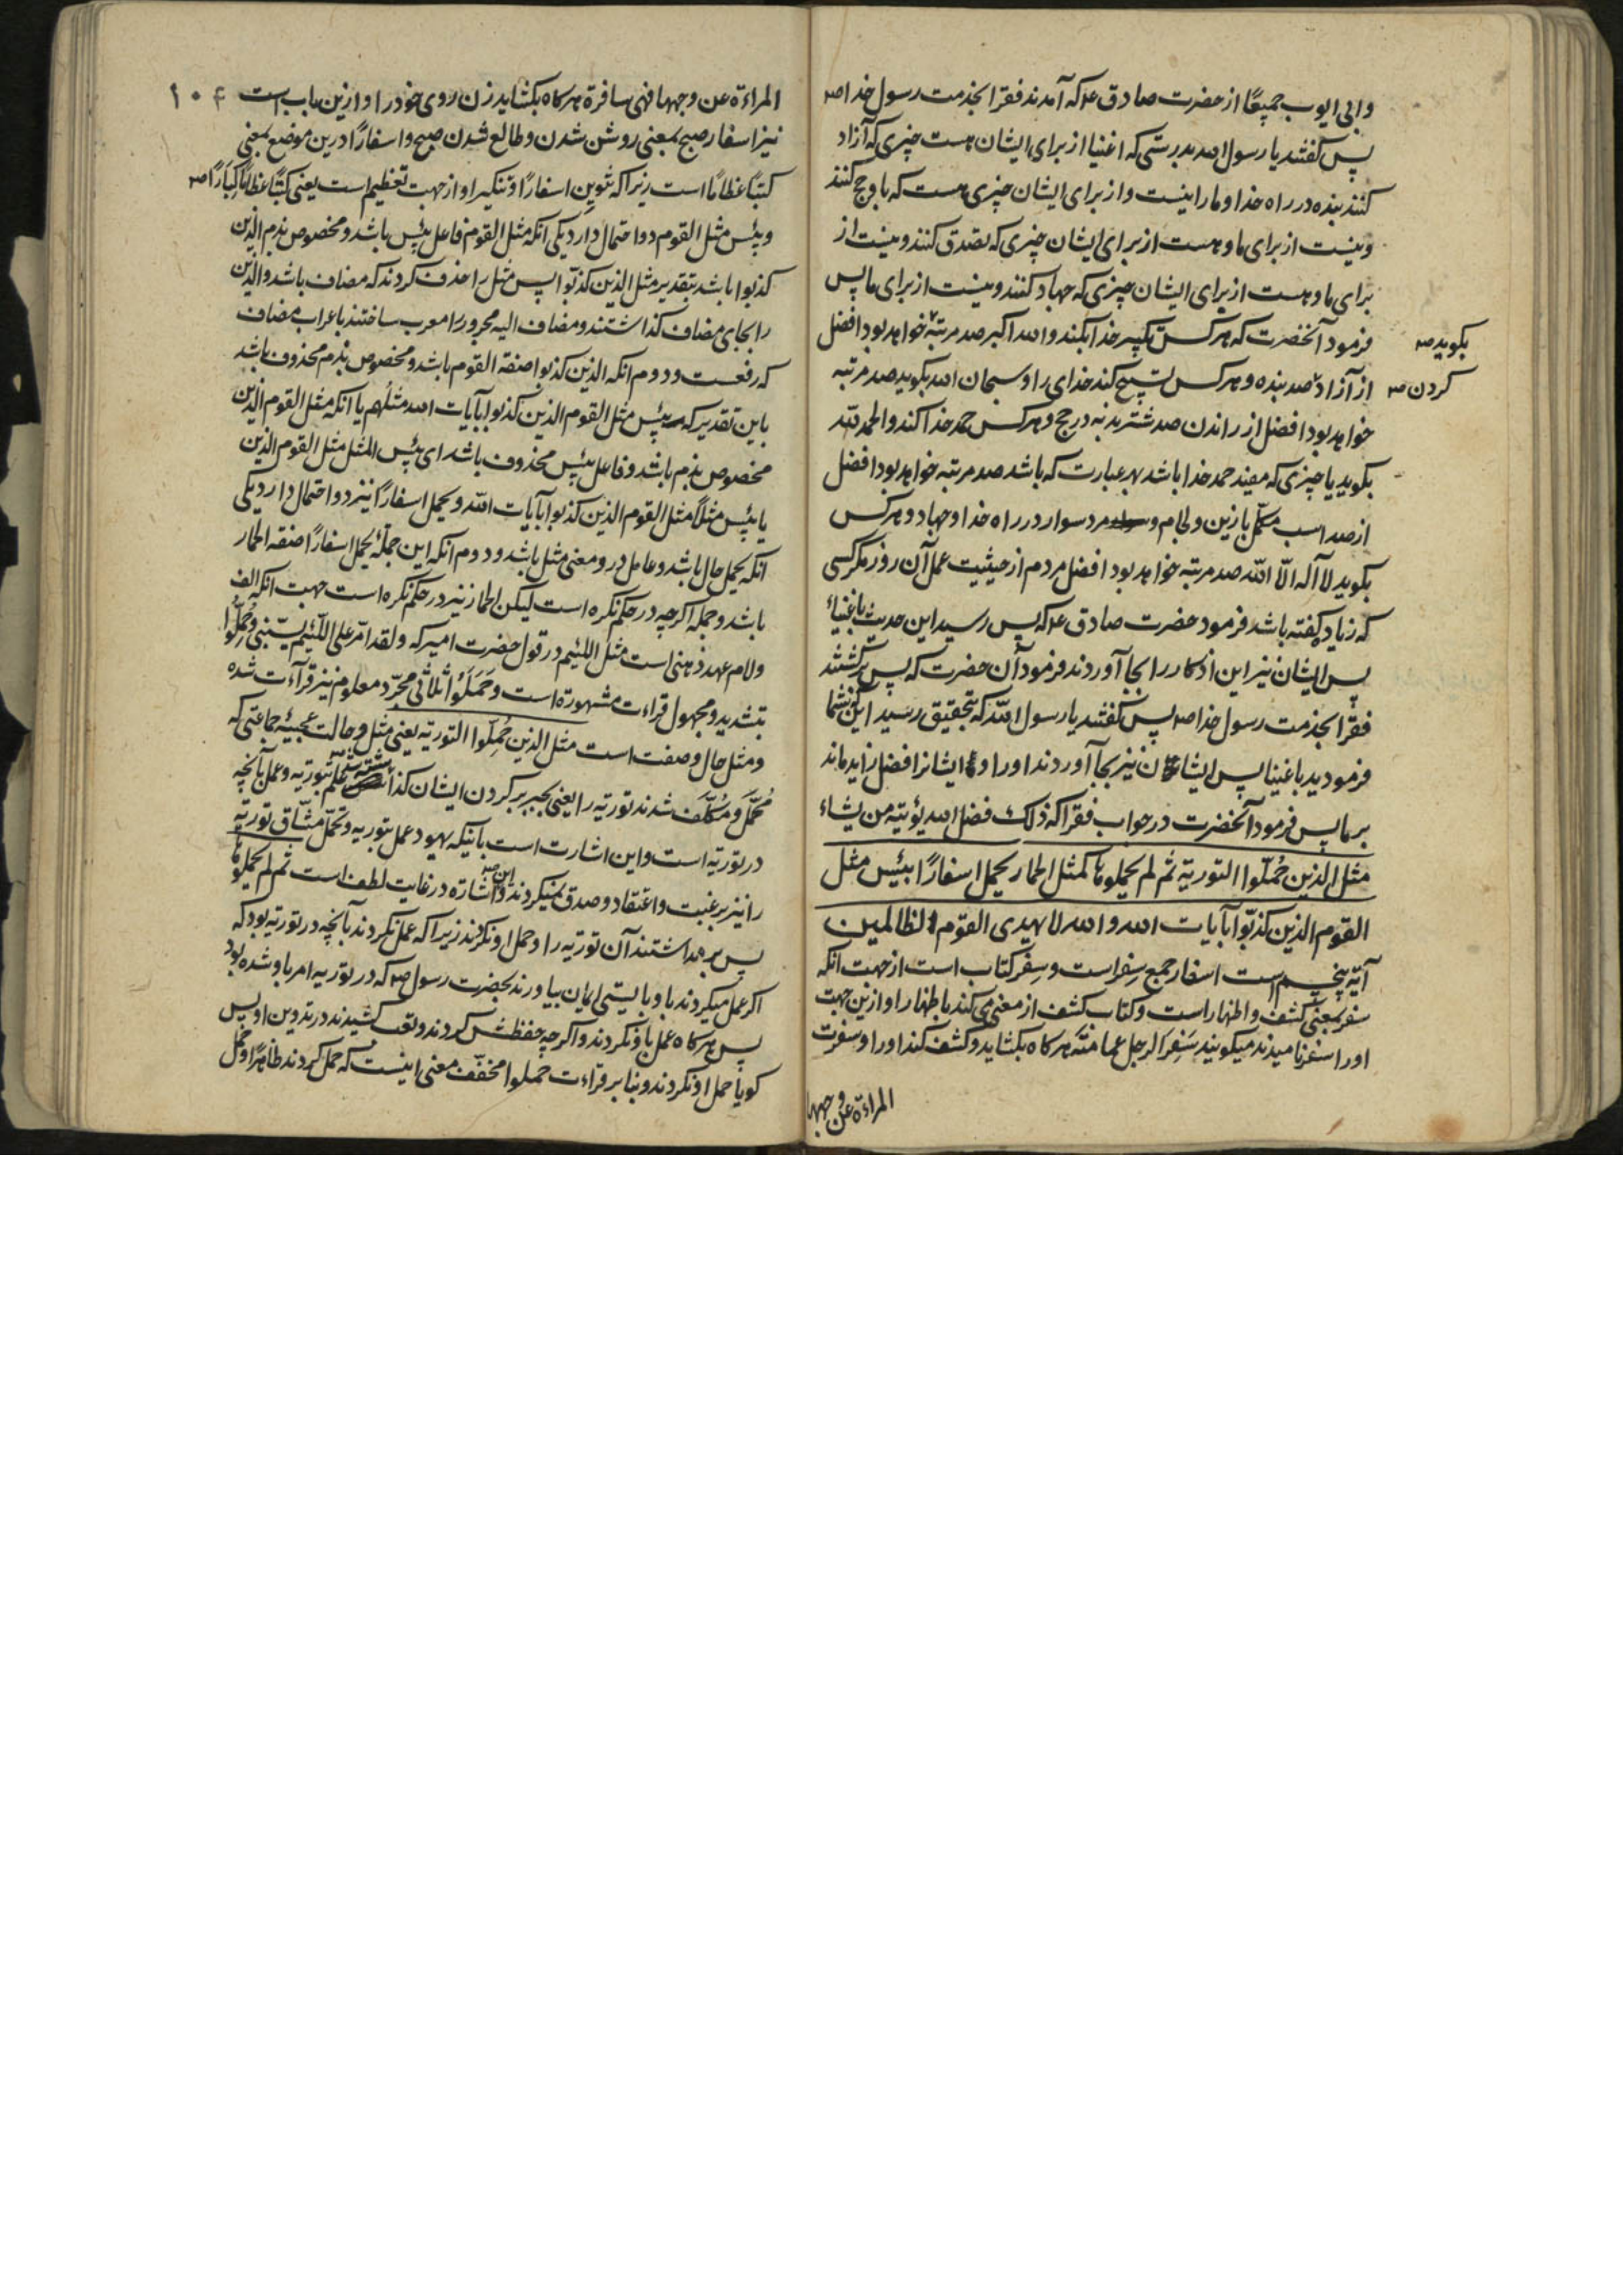 وابی ایوب جمیعًا از حضرت صادق ع که آمدند فقرا بخدمت رسول خدا صه
پس کفتند یا رسول الله بدرستی که اغنیا از برای ایشان هست چیزی که آزاد
کنند بنده در راه خدا و ما را نیست و از برای ایشان چیزی هست که باو حج کنند
و نیست از برای ما و هست از برای ایشان چیزی که تصدق کنند و نیست از
برای ما و هست از برای ایشان چیزی که جهاد کنند و نیست از برای ما پس
فرمود آنحضرت که هر کس تکبیر خدا بکند والله اکبر صد مرتبه خواهد بود افضل
بکوید صه
از آزاد صد بنده و هر کس تسبیح کند خدای را و سبحان الله بکوید صد مرتبه
کردن صه
خواهد بود افضل از راندن صد شتر بدنه در حج و هر کس حمد خدا کند و الحمد لله
بکوید یا چیزی که مفید حمد خدا باشد بهر عبارت که باشد صد مرتبه خواهد بود افضل
از صد اسب مکمل با زین و لجام و مرد سوار در راه خدا و جهاد و هر کس
بکوید لا آله الّا الله صد مرتبه خواهد بود افضل مردم از حیثیت عمل آن روز مکر کسی
که زیاده کفته باشد فرمود حضرت صادق ع که پس رسید این حدیث باغنیاء
پس ایشان نیز این اذکار را بجا آوردند فرمود آن حضرت که پس برکشتند
فقرا بخدمت رسول خدا صه پس کفتند یا رسول الله که بتحقیق رسید آنکه شما
فرمودید باغنیا پس ایشان نیز بجا آوردند او را و ایشانرا افضل زاید ماند
بر ما پس فرمود آنحضرت در جواب فقرا که ذلک فضل الله یؤتیه من یشاء
مثل الذین حُمّلوا التوریة ثم لم یحملوها کمثل الحمار یحمل اسفارًا بئس مثل
القوم الذین کذّبوا بآیات الله والله لا یهدی القوم الظالمین
آیه پنجم است اسفار جمع سِفر است و سِفر کتاب است از جهت انکه
سفر بمعنی کشف و اظهار است و کتاب کشف از معنی می کند باظهار او از این جهت
او را سفر نامیدند میکویند سَفَرَ الرجل عمامته هر کاه بکشاید و کشف کند او را و سفرت
المراءة عن وجهها
۱۰۴
المراءة عن وجهها فهی سافرة هر کاه بکشاید زن روی خود را و ازین باب است
نیز اسفار صبح بمعنی روشن شدن و طالع شدن صبح و اسفارًا درین موضع بمعنی
کتبًا عظامًا است زیرا که تنوین اسفارًا و تنکیر او از جهت تعظیم است یعنی کتبًا عظامًا کبارًا صه
و بئس مثل القوم دو احتمال دارد یکی انکه مثل القوم فاعل بئس باشد و مخصوص بذم الذین
کذبوا باشد بتقدیر مثل الذین کذّبوا پس مثل را حذف کردند که مضاف باشد و الذین
را بجای مضاف کذاشتند و مضاف الیه مجرور را معرب ساختند باعراب مضاف
که رفعست و دوم انکه الذین کذبوا صفة القوم باشد و مخصوص بذم محذوف باشد
باین تقدیر که بئس مثل القوم الذین کذبوا بآیات الله مثلهم یا انکه مثل القوم الذین
مخصوص بذم باشد و فاعل بئس محذوف باشد ای بئس المثل مثل القوم الذین
یا بئس مثلًا مثل القوم الذین کذبوا بآیات الله و یحمل اسفارًا نیز دو احتمال دارد یکی
انکه یحمل حال باشد و عامل درو معنی مثل باشد و دوم انکه این جمله یحمل اسفارًا صفة الحمار
باشد و جمله اکرچه در حکم نکره است لیکن الحمار نیز در حکم نکره است جهت انکه الف
ولام عهد ذهنی است مثل اللئیم در قول حضرت امیر که و لقد امرّ علی اللئیم یسبّنی و حُمّلوا
بتشدید و مجهول قراءت مشهوره است و حَمَلَوُا ثلاثی مجرّد معلوم نیز قرآءت شده
ومثل حال و صفت است مثل الذین حُمّلوا التوریة یعنی مثل و حالت عجیبه جماعتی که
مُحَمّل و مُکَلّف شدند توریة را یعنی بجبر بر کردن ایشان کذاشته شد علم بتوریة و عمل بآنچه
در توریة است و این اشارت است بآنیکه یهود عمل بتوریه و تحمّل مشّاق توریه
را نیز برغبت و اعتقاد و صدق نمیکردند و این اشاره در غایت لطف است ثم لم یحملوها
پس بر نداشتند آن توریه را و حمل او نکردند زیرا که عمل نکردند بآنچه در توریه بود که
اکر عمل میکردند باو بایستی ایمان بیاورند بحضرت رسول صه که در توریه امر باو شده بود
پس هر کاه عمل باو نکردند و اکرچه حفظش کردند و تعب کشیدند در تدوین او پس
کویا حمل او نکردند و بنا بر قراءت حملوا مخفّف معنی اینست که حمل کردند ظاهرًا و حمل